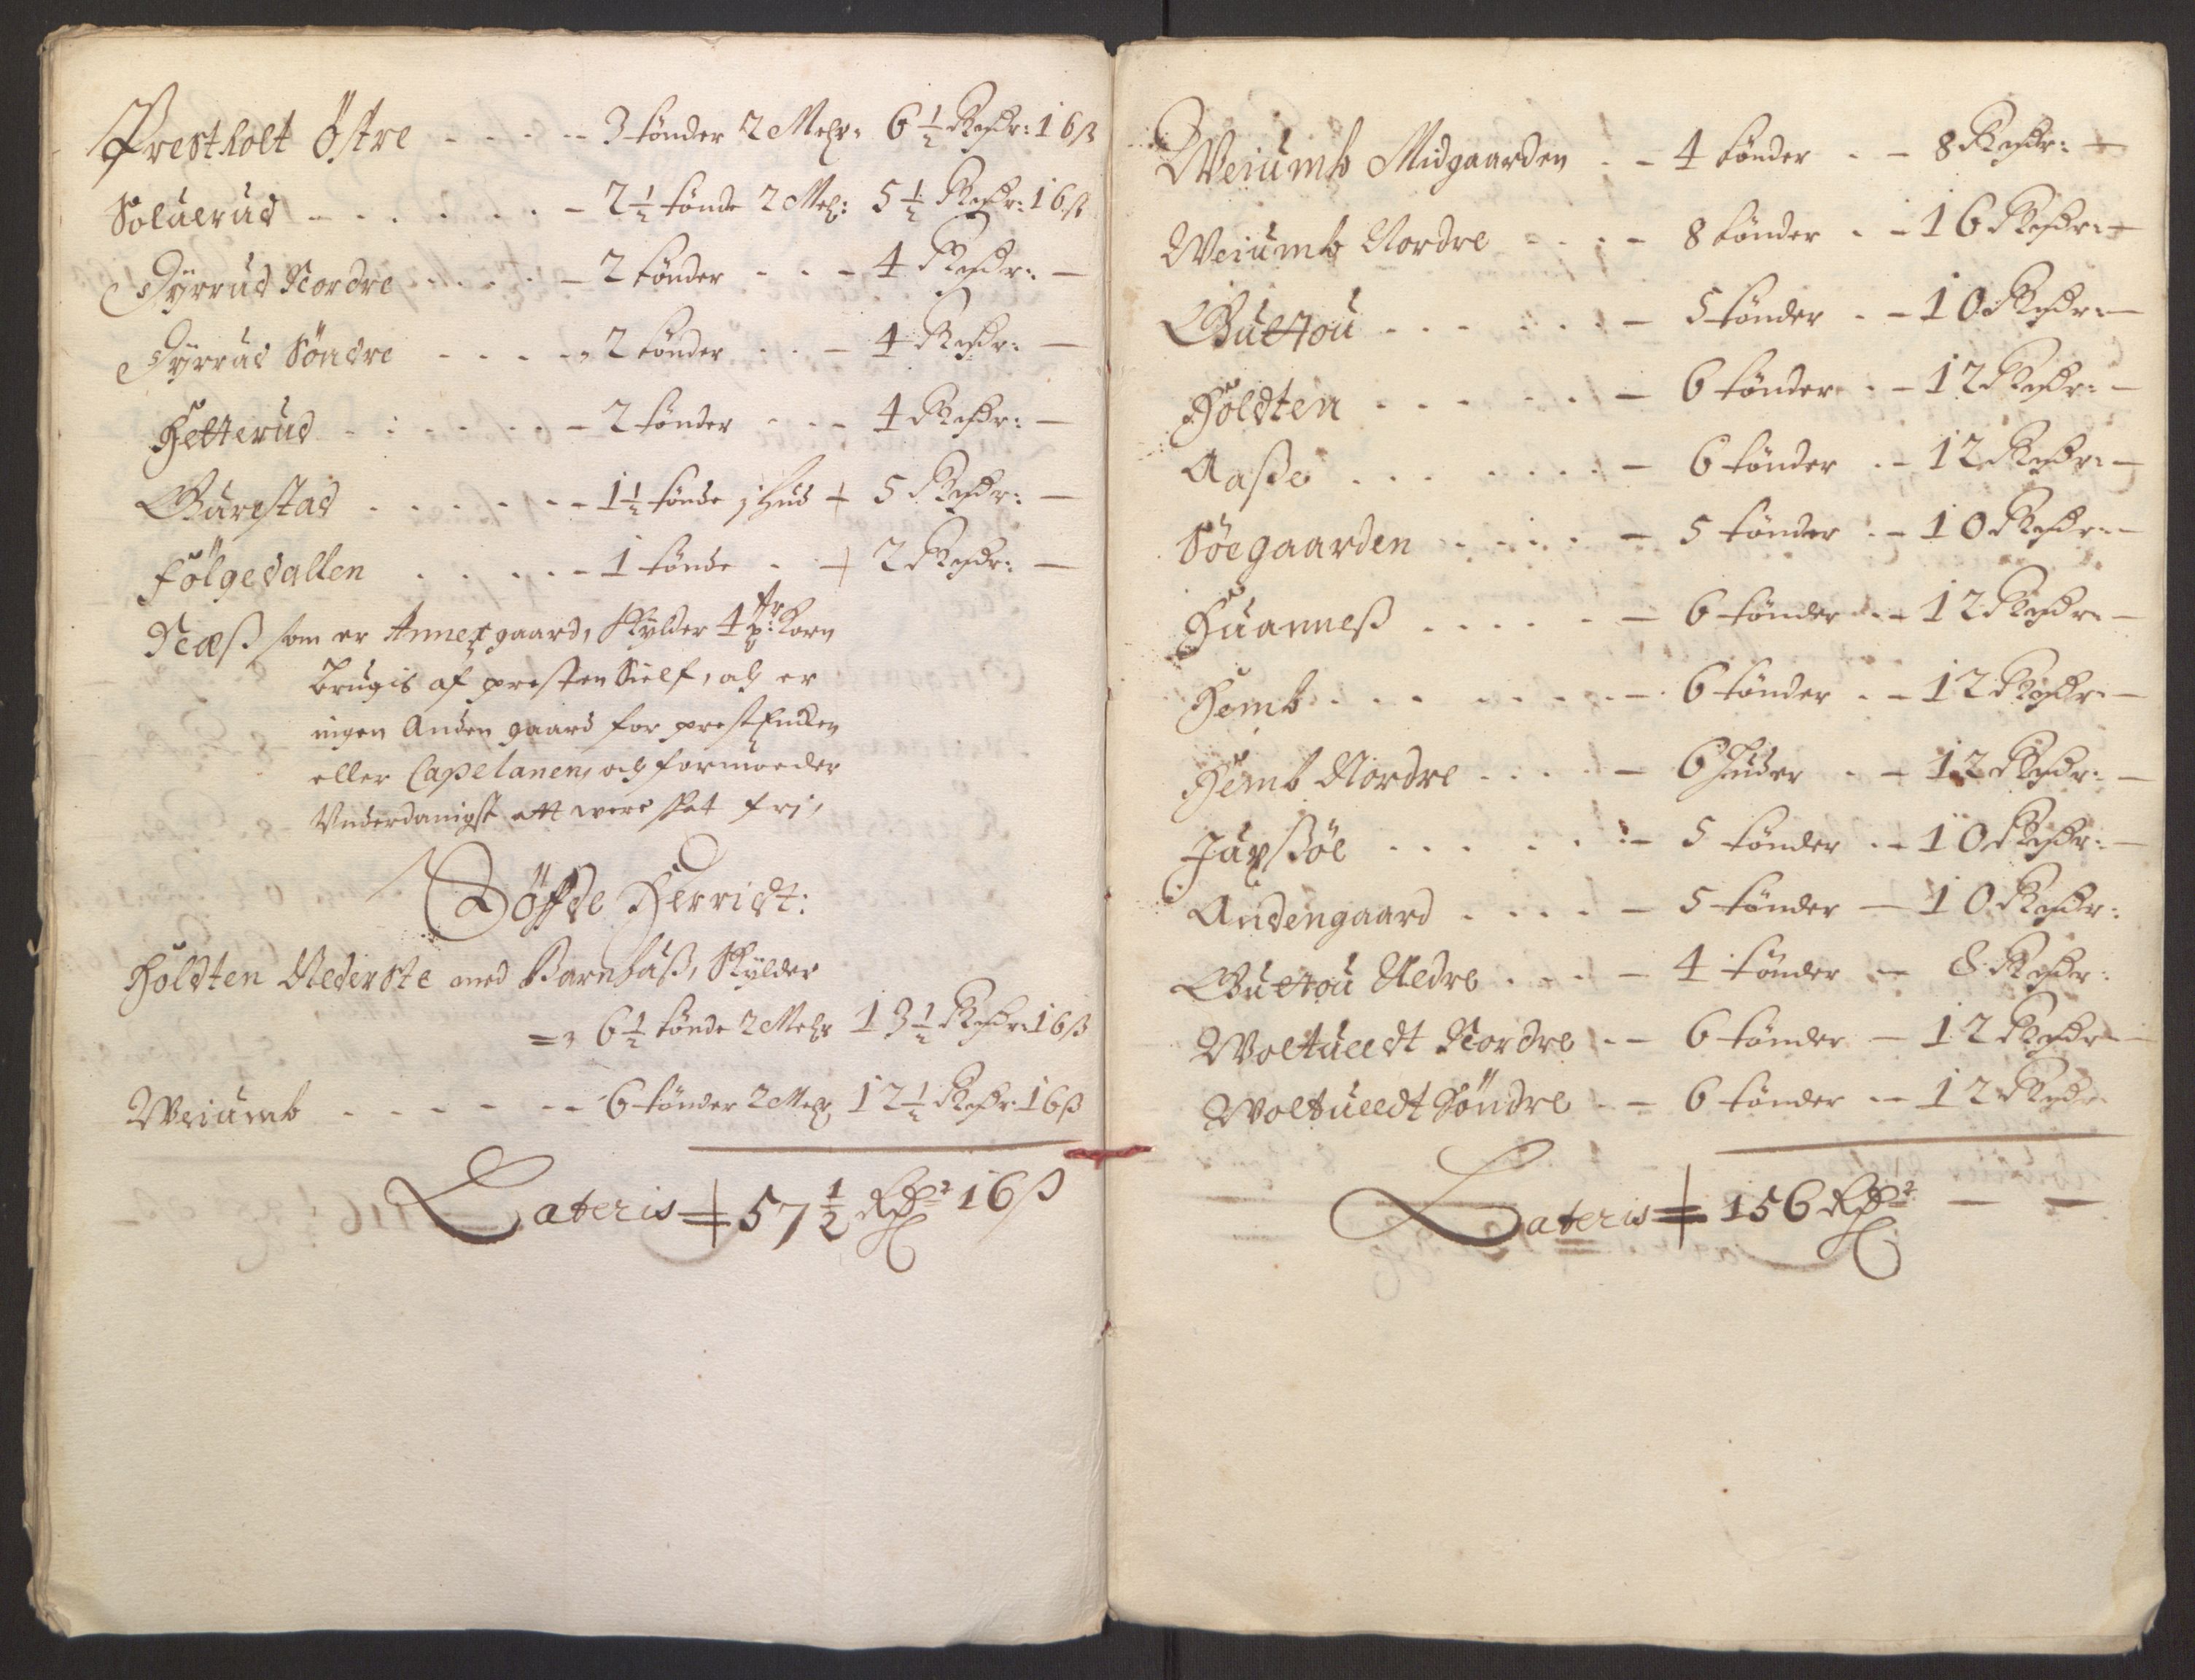 Prestholt Östre - - - - - 3 tønder 2 Mehr: 6 1/2 Rixdr: 16 ß
Soluerud - - - - - - 2 1/2 tønde 2 Mel: 5 1/2 Rixdr: 16 ß
Gÿrrud Nordre - - - - - 2 tønder - - - 4 Rixdr: -
Gÿrrud Söndre - - - - - 2 tønder - - - 4 Rixdr: -
Hetterud - - - - - - 2 tønder - - - 4 Rixdr: -
Gurestad - - - - - - 1 1/2 tønde j Hud + 5 Rixdr: -
Fölgedallen - - - - - 1 tønde - + 2 Rixdr: -
Neæß som er Annexgaard, Skylder 4 pr: Korn
brugis af presten Sielf, och er
ingen Anden gaard for prestEncken
eller Capelanen, och formoeder
Vnderdanigst att were skat frj,
Döffde Herridt:
Holdten Nederste med Barnbaß, Skylder
= 6 1/2 tønde 2 Mehr 13 1/2 Rixdr: 16 ß
Weiumb - - - - - - 6 tønder 2 Mel 12 1/2 Rixdr: 16 ß
Lateris = 57 1/2 Rdr 16 ß
Weiumb Midgaarden - - 4 tønder - - 8 Rixdr: -
Weiumb Nordre - - - - 8 tønder - - 16 Rixdr: -
Guttou - - - - - - 5 tønder - - 10 Rixdr: -
Holdten - - - - - - 6 tønder - - 12 Rixdr: -
Aaße - - - - - - 6 tønder - - 12 Rixdr: -
Söegaarden - - - - - 5 tønder - - 10 Rixdr: -
Huanneß - - - - - - 6 tønder - - 12 Rixdr: -
Hemb - - - - - - - 6 tønder - - 12 Rixdr: -
Hemb Nordre - - - - - 6 Huder - - 12 Rixdr: -
Jarßöe - - - - - - 5 tønder - - 10 Rixdr: -
Andengaard - - - - - 5 tønder - 10 Rixdr:
Guttou Nedre - - - - 4 tønder - 8 Rixdr:
Woltueedt Nordre - - 6 tønder - 12 Rixdr: -
Woltueedt Söndre - - 6 tønder - - 12 Rixdr
Lateris = 156 Rdr - -